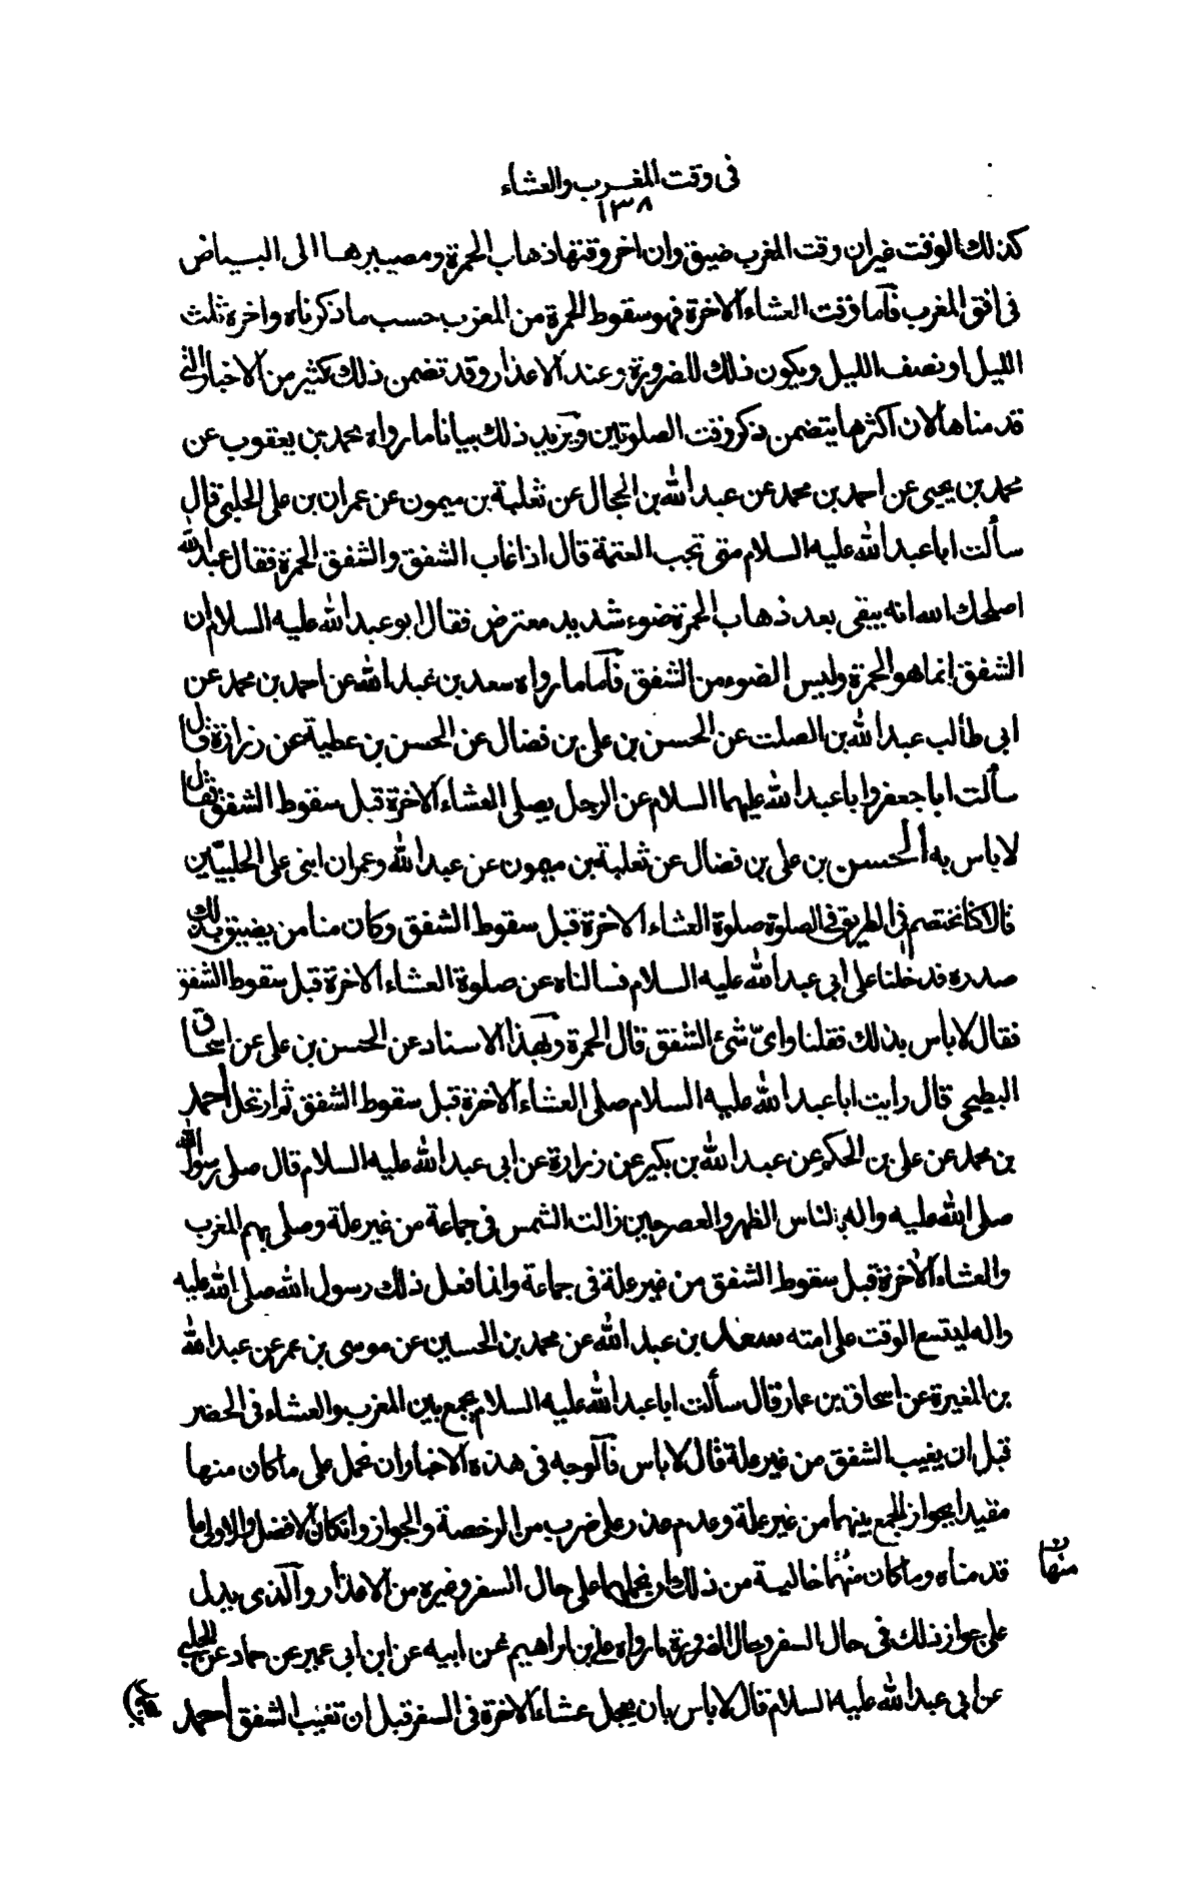 فى وقت المغرب والعشاء
١٣٨
كذلك الوقت غير ان وقت المغرب ضيق وان اخر وقتها ذهاب الحمرة ومصيرها الى البياض
فى افق المغرب فآما وقت العشاء الاخرة فهو سقوط الحمرة من المغرب حسب ما ذكرناه واخره ثلث
الليل او نصف الليل ويكون ذلك للضرورة وعند الاعذار وقد تضمن ذلك كثير من الاخبار التى
قدمناها لان اكثرها يتضمن ذكر وقت الصلوتين ويزيد ذلك بيانا ما رواه محمد بن يعقوب عن
محمد بن يحيى عن احمد بن محمد عن عبد الله بن الحجال عن ثعلبة بن ميمون عن عمران بن على الحلبى قال
سألت ابا عبد الله عليه السلام متى تجب العتمة قال اذا غاب الشفق والشفق الحمرة فقال عبيد الله
اصلحك الله انه يبقى بعد ذهاب الحمرة ضوء شديد معترض فقال ابو عبد الله عليه السلام ان
الشفق انما هو الحمرة وليس الضوء من الشفق فآما ما رواه سعد بن عبد الله عن احمد بن محمد عن
ابى طالب عبد الله بن الصلت عن الحسن بن على بن فضال عن الحسن بن عطية عن زرارة قال
سألت ابا جعفر وابا عبد الله عليهما السلام عن الرجل يصلى العشاء الاخرة قبل سقوط الشفق فقال
لا باس به الحسن بن على بن فضال عن ثعلبة بن ميمون عن عبد الله وعمران ابنى على الحلبيّين
قالا كنا نختصم فى الطريق فى الصلوة صلوة العشاء الاخرة قبل سقوط الشفق وكان منا من يضيق بذلك
صدره فدخلنا على ابى عبد الله عليه السلام فسالناه عن صلوة العشاء الاخرة قبل سقوط الشفق
فقال لا باس بذلك فقلنا واىّ شئ الشفق قال الحمرة وبهذا الاسناد عن الحسن بن على عن اسحاق
البطيحى قال رايت ابا عبد الله عليه السلام صلى العشاء الاخرة قبل سقوط الشفق ثم ارتحل احمد
بن محمد عن على بن الحكم عن عبد الله بن بكير عن زرارة عن ابى عبد الله عليه السلام قال صلى رسول الله
صلى الله عليه واله بالناس الظهر والعصر حين زالت الشمس فى جماعة من غير علة وصلى بهم المغرب
والعشاء الاخرة قبل سقوط الشفق من غير علة فى جماعة وانما فعل ذلك رسول الله صلى الله عليه
واله ليتسع الوقت على امته سعد بن عبد الله عن محمد بن الحسين عن موسى بن عمر عن عبد الله
بن المغيرة عن اسحاق بن عمار قال سألت ابا عبد الله عليه السلام يجمع بين المغرب والعشاء فى الحضر
قبل ان يغيب الشفق من غير علة قال لا باس فآلوجه فى هذه الاخبار ان نحمل على ما كان منها
مقيدا بجواز الجمع بينهما من غير علة وعدم عذر على ضرب من الرخصة والجواز وان كان الافضل والاولى ما
قدمناه وما كان منهما خالية من ذلك ان نحملها على حال السفر وغيره من الاعذار وآلذى يدل
منها ن
على جواز ذلك فى حال السفر وحال الضرورة ما رواه على بن ابراهيم عن ابيه عن ابن ابى عمير عن حماد عن الحلبى
عن ابى عبد الله عليه السلام قال لا باس بان يعجل عشاء الاخرة فى السفر قبل ان تغيب الشفق احمد